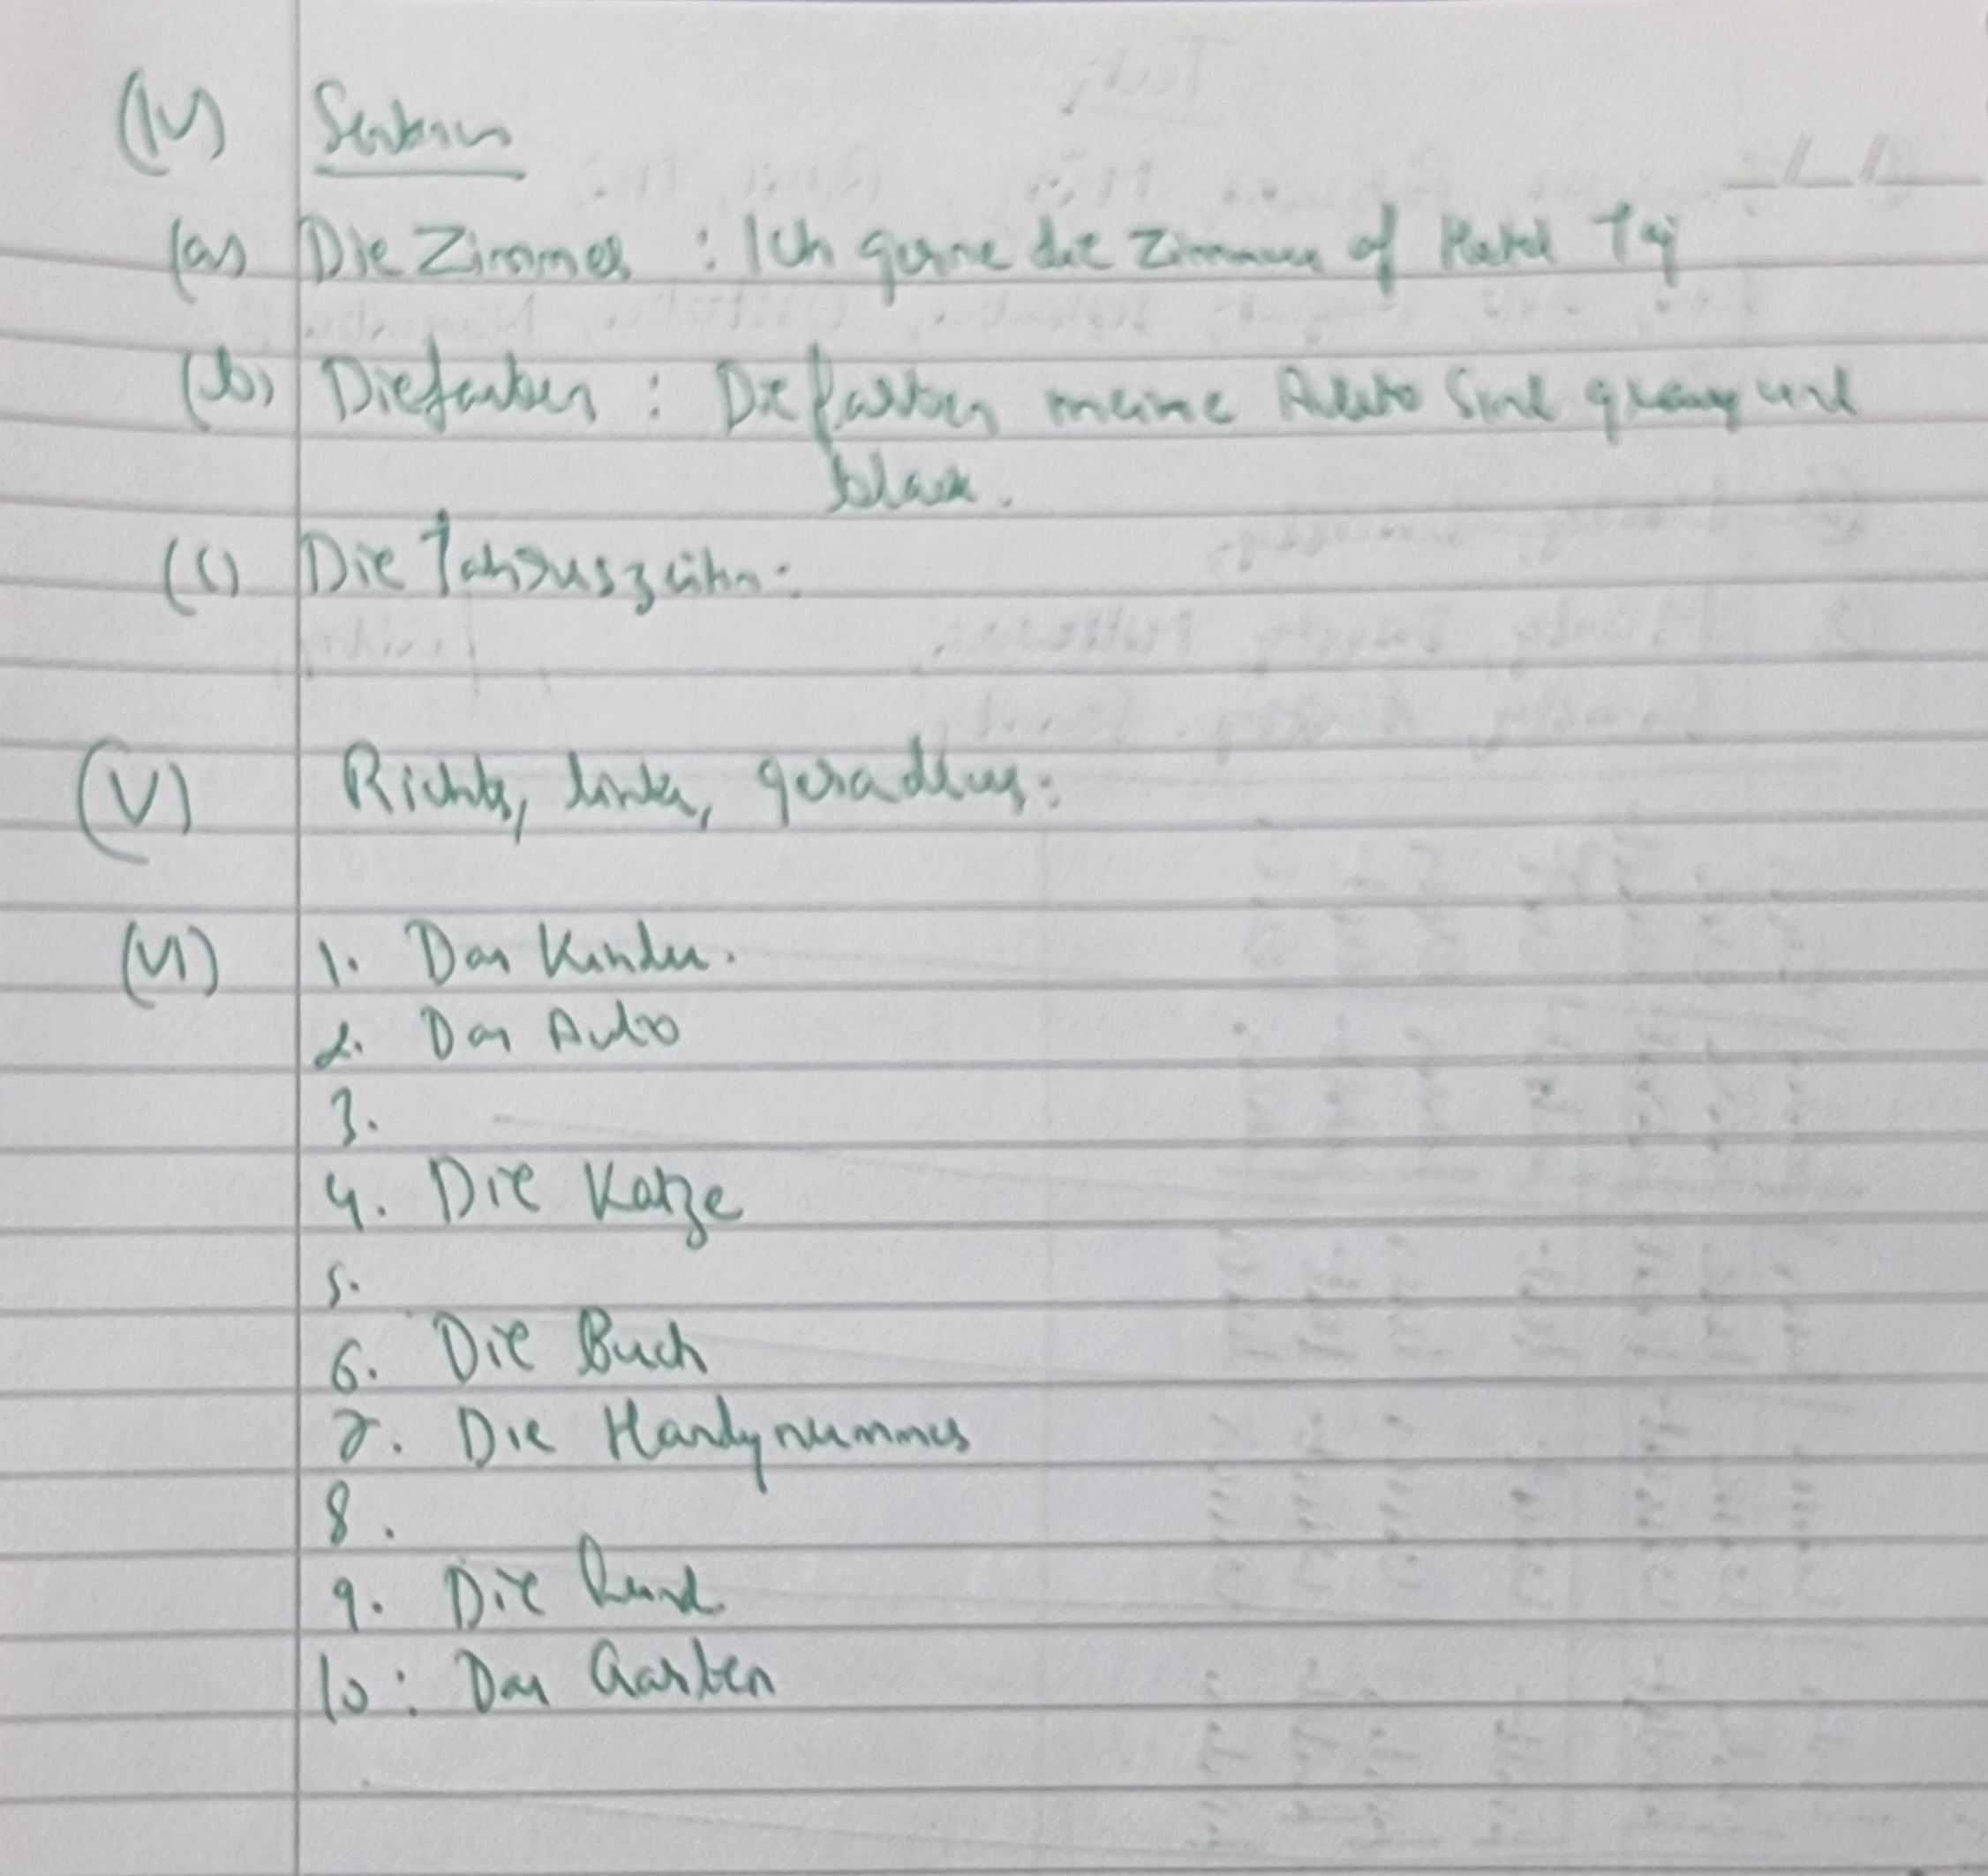 (IV) Sentences
(a) Die Zimmer : Ich gerne die Zimmer of Hotel Taj
(b) Die farben : Die farben meine Auto Sind gray und
black.
(c) Die Jahreszeiten:
(V) Richts, links, geradeus:
(VI) 1. Das Kinder.
2. Das Auto
3.
4. Die Katze
5.
6. Die Buch
7. Die Handynummer
8.
9. Die Hund
10: Das Garten